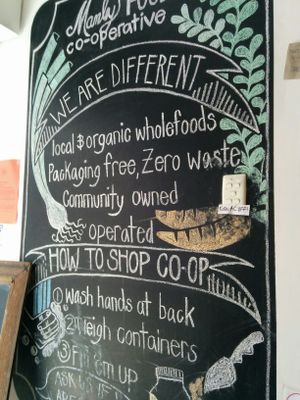 Manly Food
co-operative
WE ARE DIFFERENT
local & organic wholefoods
Packaging free, Zero waste
Community owned
& operated
HOW TO SHOP CO-OP
① wash hands at back
② weigh containers
③ Fill 'em UP
ASK US IF